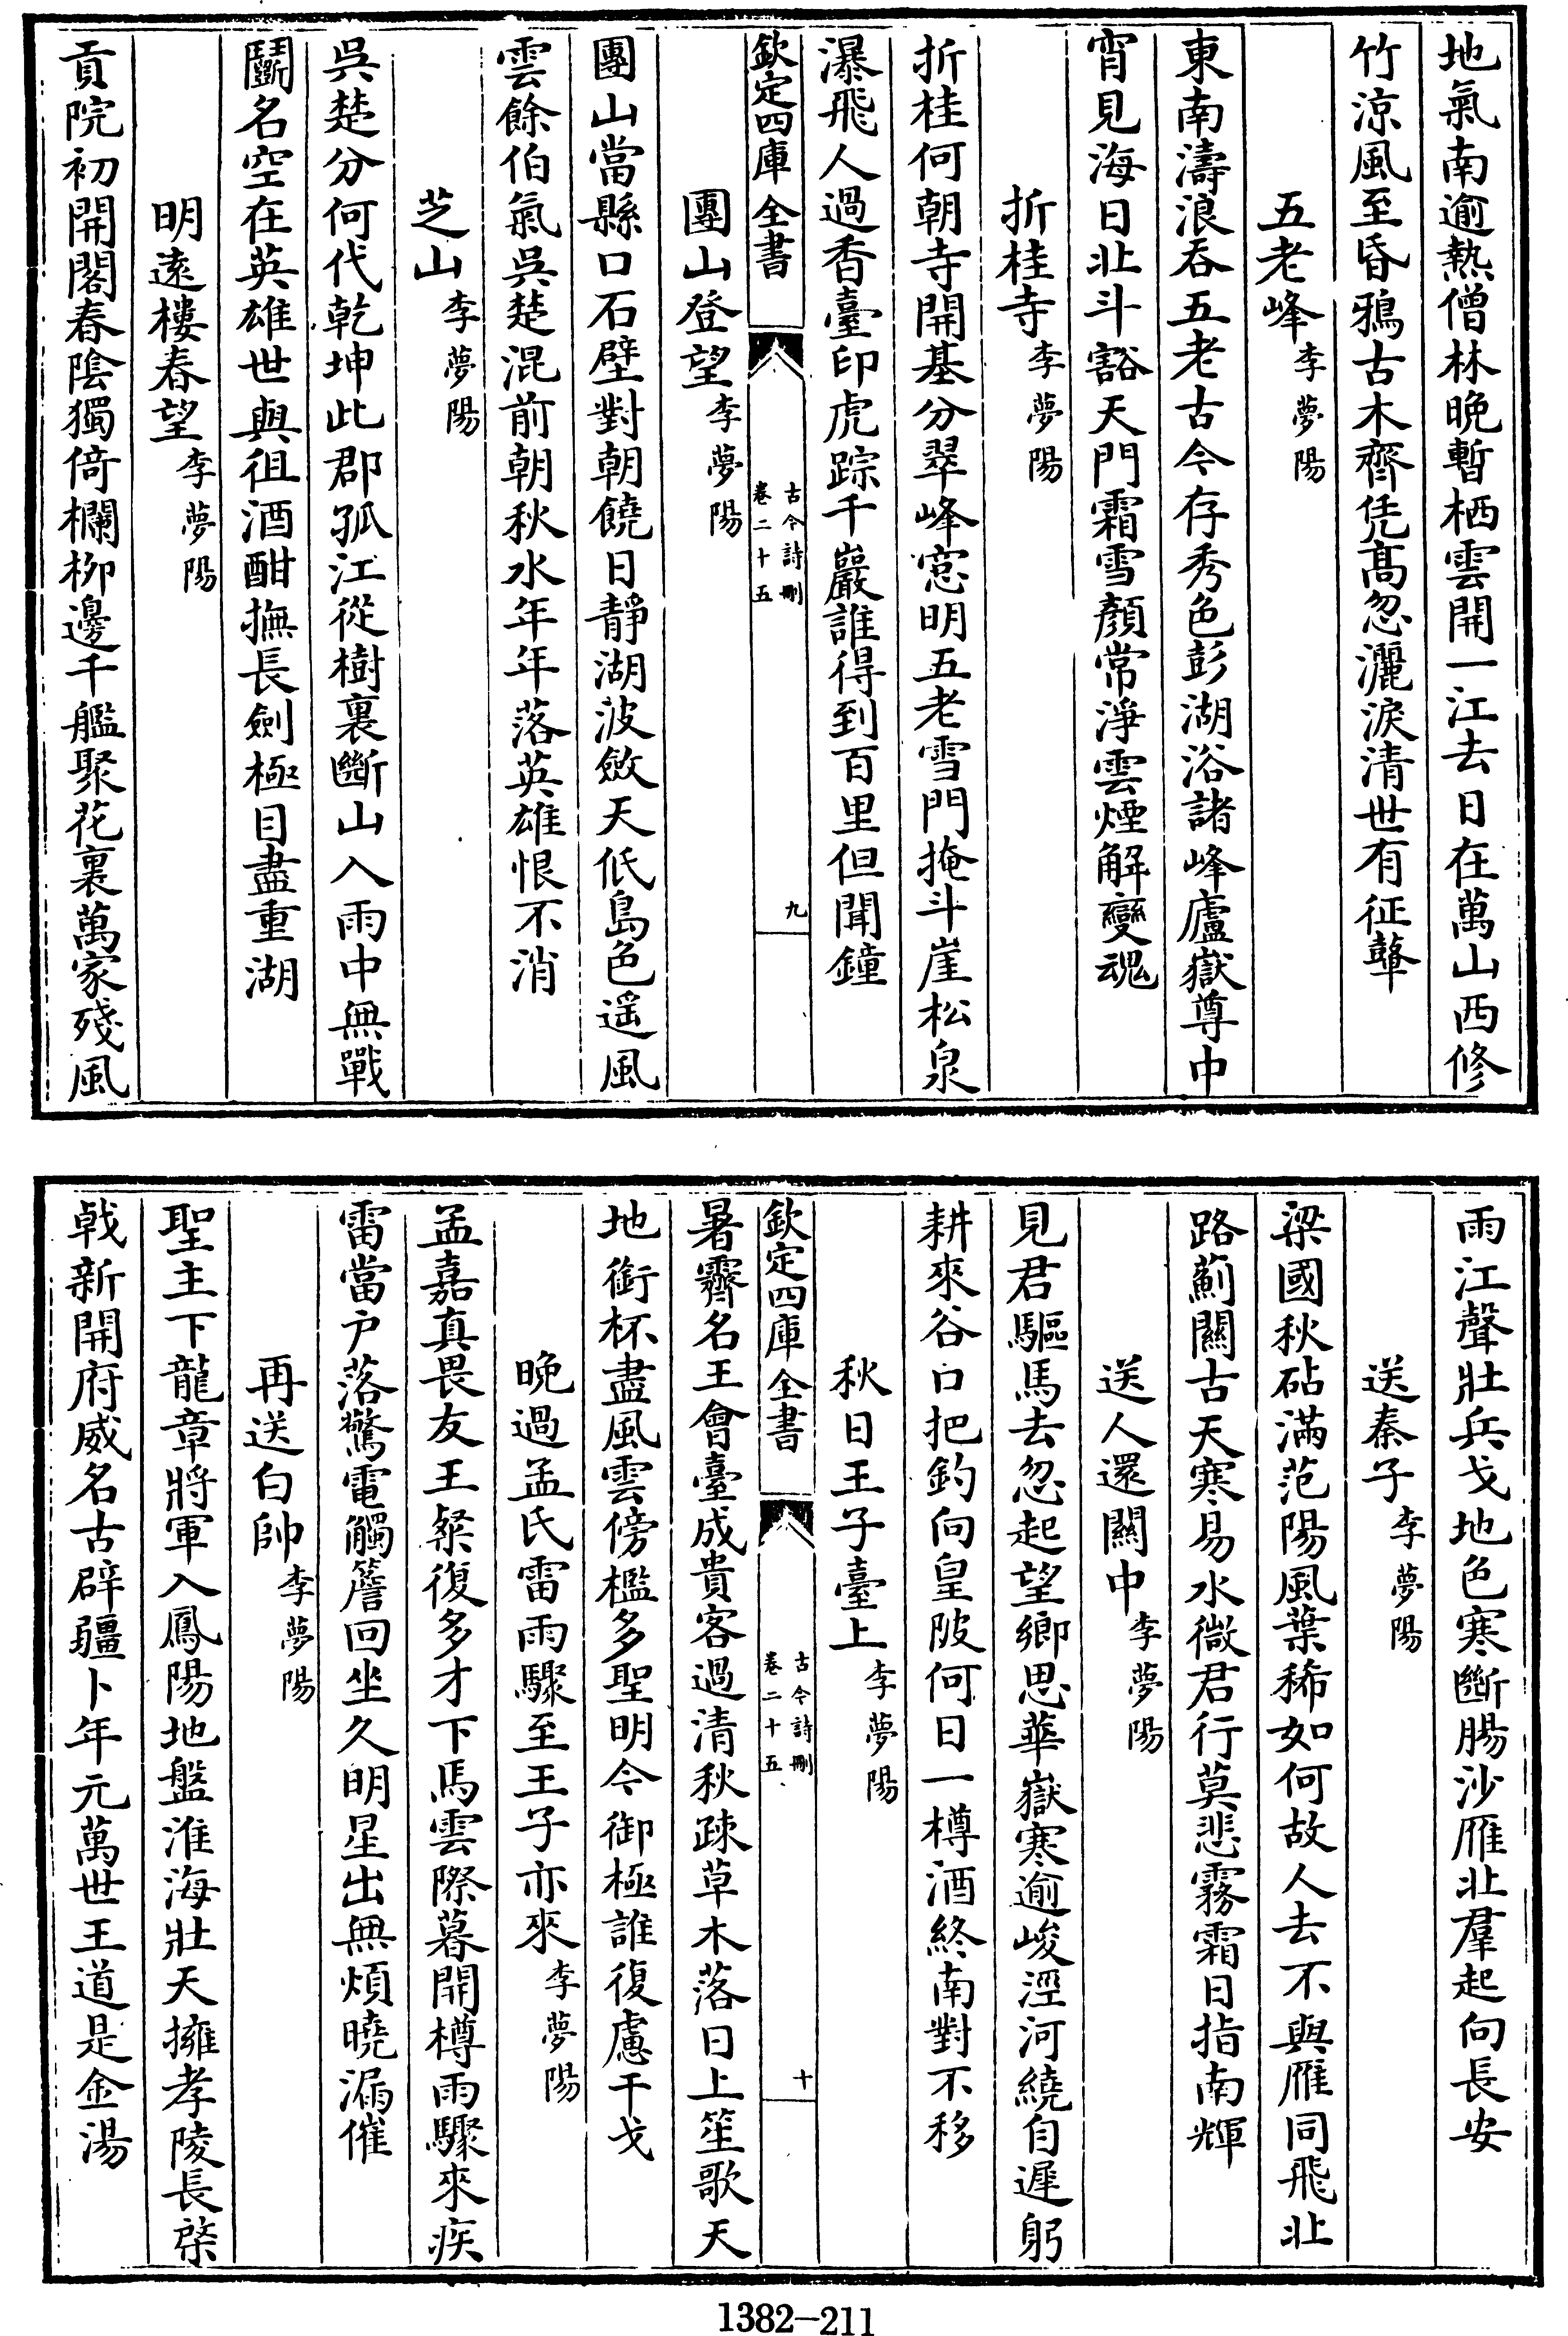 地氣南逾熱僧林晚暫栖雲開一江去日在萬山西修
竹涼風至昏鴉古木齊凭髙忽灑淚清世有征鼙
五老峰李夢陽
東南濤浪吞五老古今存秀色彭湖浴諸峰廬嶽尊中
宵見海日北斗豁天門霜雪顏常淨雲煙解變魂
折桂寺李夢陽
折桂何朝寺開基分翠峰窓明五老雪門掩斗崖松泉
瀑飛人過香臺印虎踪千巖誰得到百里但聞鐘
欽定四庫全書
古今詩刪
卷二十五
九
團山登望李夢陽
團山當縣口石壁對朝饒日靜湖波斂天低島色遥風
雲餘伯氣吳楚混前朝秋水年年落英雄恨不消
芝山李夢陽
吳楚分何代乾坤此郡孤江從樹裏斷山入雨中無戰
鬭名空在英雄世與徂酒酣撫長劍極目盡重湖
明遠樓春望李夢陽
貢院初開閣春陰獨倚欄柳邊千艦聚花裏萬家殘風
雨江聲壯兵戈地色寒斷腸沙雁北羣起向長安
送秦子李夢陽
梁國秋砧滿范陽風葉稀如何故人去不與雁同飛北
路薊關古天寒易水微君行莫悲霧霜日指南輝
送人還關中李夢陽
見君驅馬去忽起望鄉思華嶽寒逾峻涇河繞自遲躬
耕來谷口把釣向皇陂何日一樽酒終南對不移
秋日王子臺上李夢陽
欽定四庫全書
古今詩刪
卷二十五
十
暑霽名王會臺成貴客過清秋疎草木落日上笙歌天
地銜杯盡風雲傍檻多聖明今御極誰復慮干戈
晚過孟氏雷雨驟至王子亦來李夢陽
孟嘉真畏友王粲復多才下馬雲際暮開樽雨驟來疾
雷當户落驚電觸簷回坐久明星出無煩曉漏催
再送白帥李夢陽
聖主下龍章將軍入鳳陽地盤淮海壯天擁孝陵長棨
戟新開府威名古辟疆卜年元萬世王道是金湯
1382-211